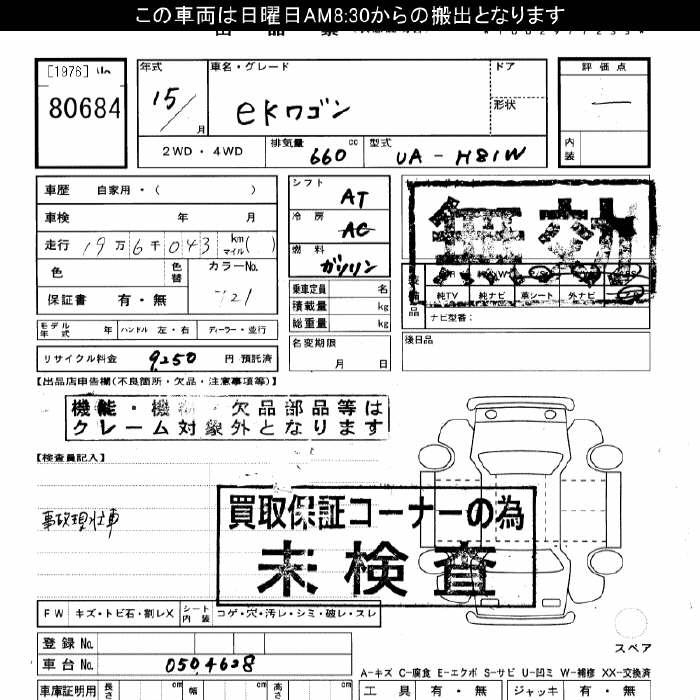 この車両は日曜日AM8:30からの搬出となります
出 品 票
[1976]
80684
年式
15/
月
車名・グレード
ekワゴン
ドア
形状
評価点
内装
2WD・4WD
排気量
660
cc
型式
UA-H81W
車歴 自家用・( )
車検 年 月
走行 19万6千043 km マイル( )
色
色替
カラーNo.
保証書 有・無
モデル年式 年 ハンドル 左・右 ディーラー・並行
リサイクル料金 9,250 円 預託済
シフト
AT
冷房
AC
燃料
ガソリン
乗車定員 名
積載量 kg
総重量 kg
名変期限
月 日
純TV 純ナビ 革シート 外ナビ
ナビ型番:
後日品
【出品店申告欄(不良箇所・欠品・注意事項等)】
機能・機 ・欠品部品等は
クレーム対象外となります
【検査員記入】
事故現状車
買取保証コーナーの為
未検査
FW キズ・トビ石・割レX シート内装 コゲ・穴・汚レ・シミ・破レ・スレ
登録No.
車台No. 0504628
スペア
A-キズ C-腐食 E-エクボ S-サビ U-凹ミ W-補修 XX-交換済
車庫証明用 長さ cm 幅 cm 高さ cm
工具 有・無 ジャッキ 有・無